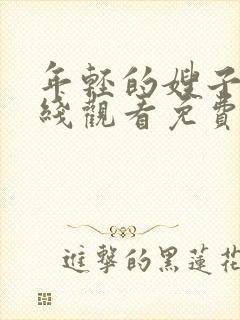 年轻的嫂子
綫觀看免費
進擊的黑蓮花